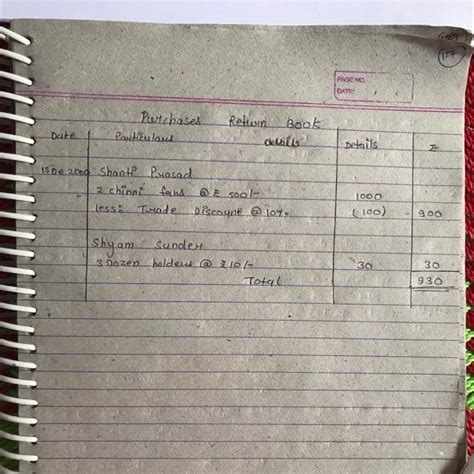 PAGE NO.
DATE:
Purchases Return Book
Date Particulars details Details ₹
15 De 2000 Shanti Prasad
2 chinni fans @ ₹ 500/- 1000
less: Trade Discount @ 10% (100) 900
Shyam Sunder
3 Dozen holders @ ₹10/- 30 30
Total 930